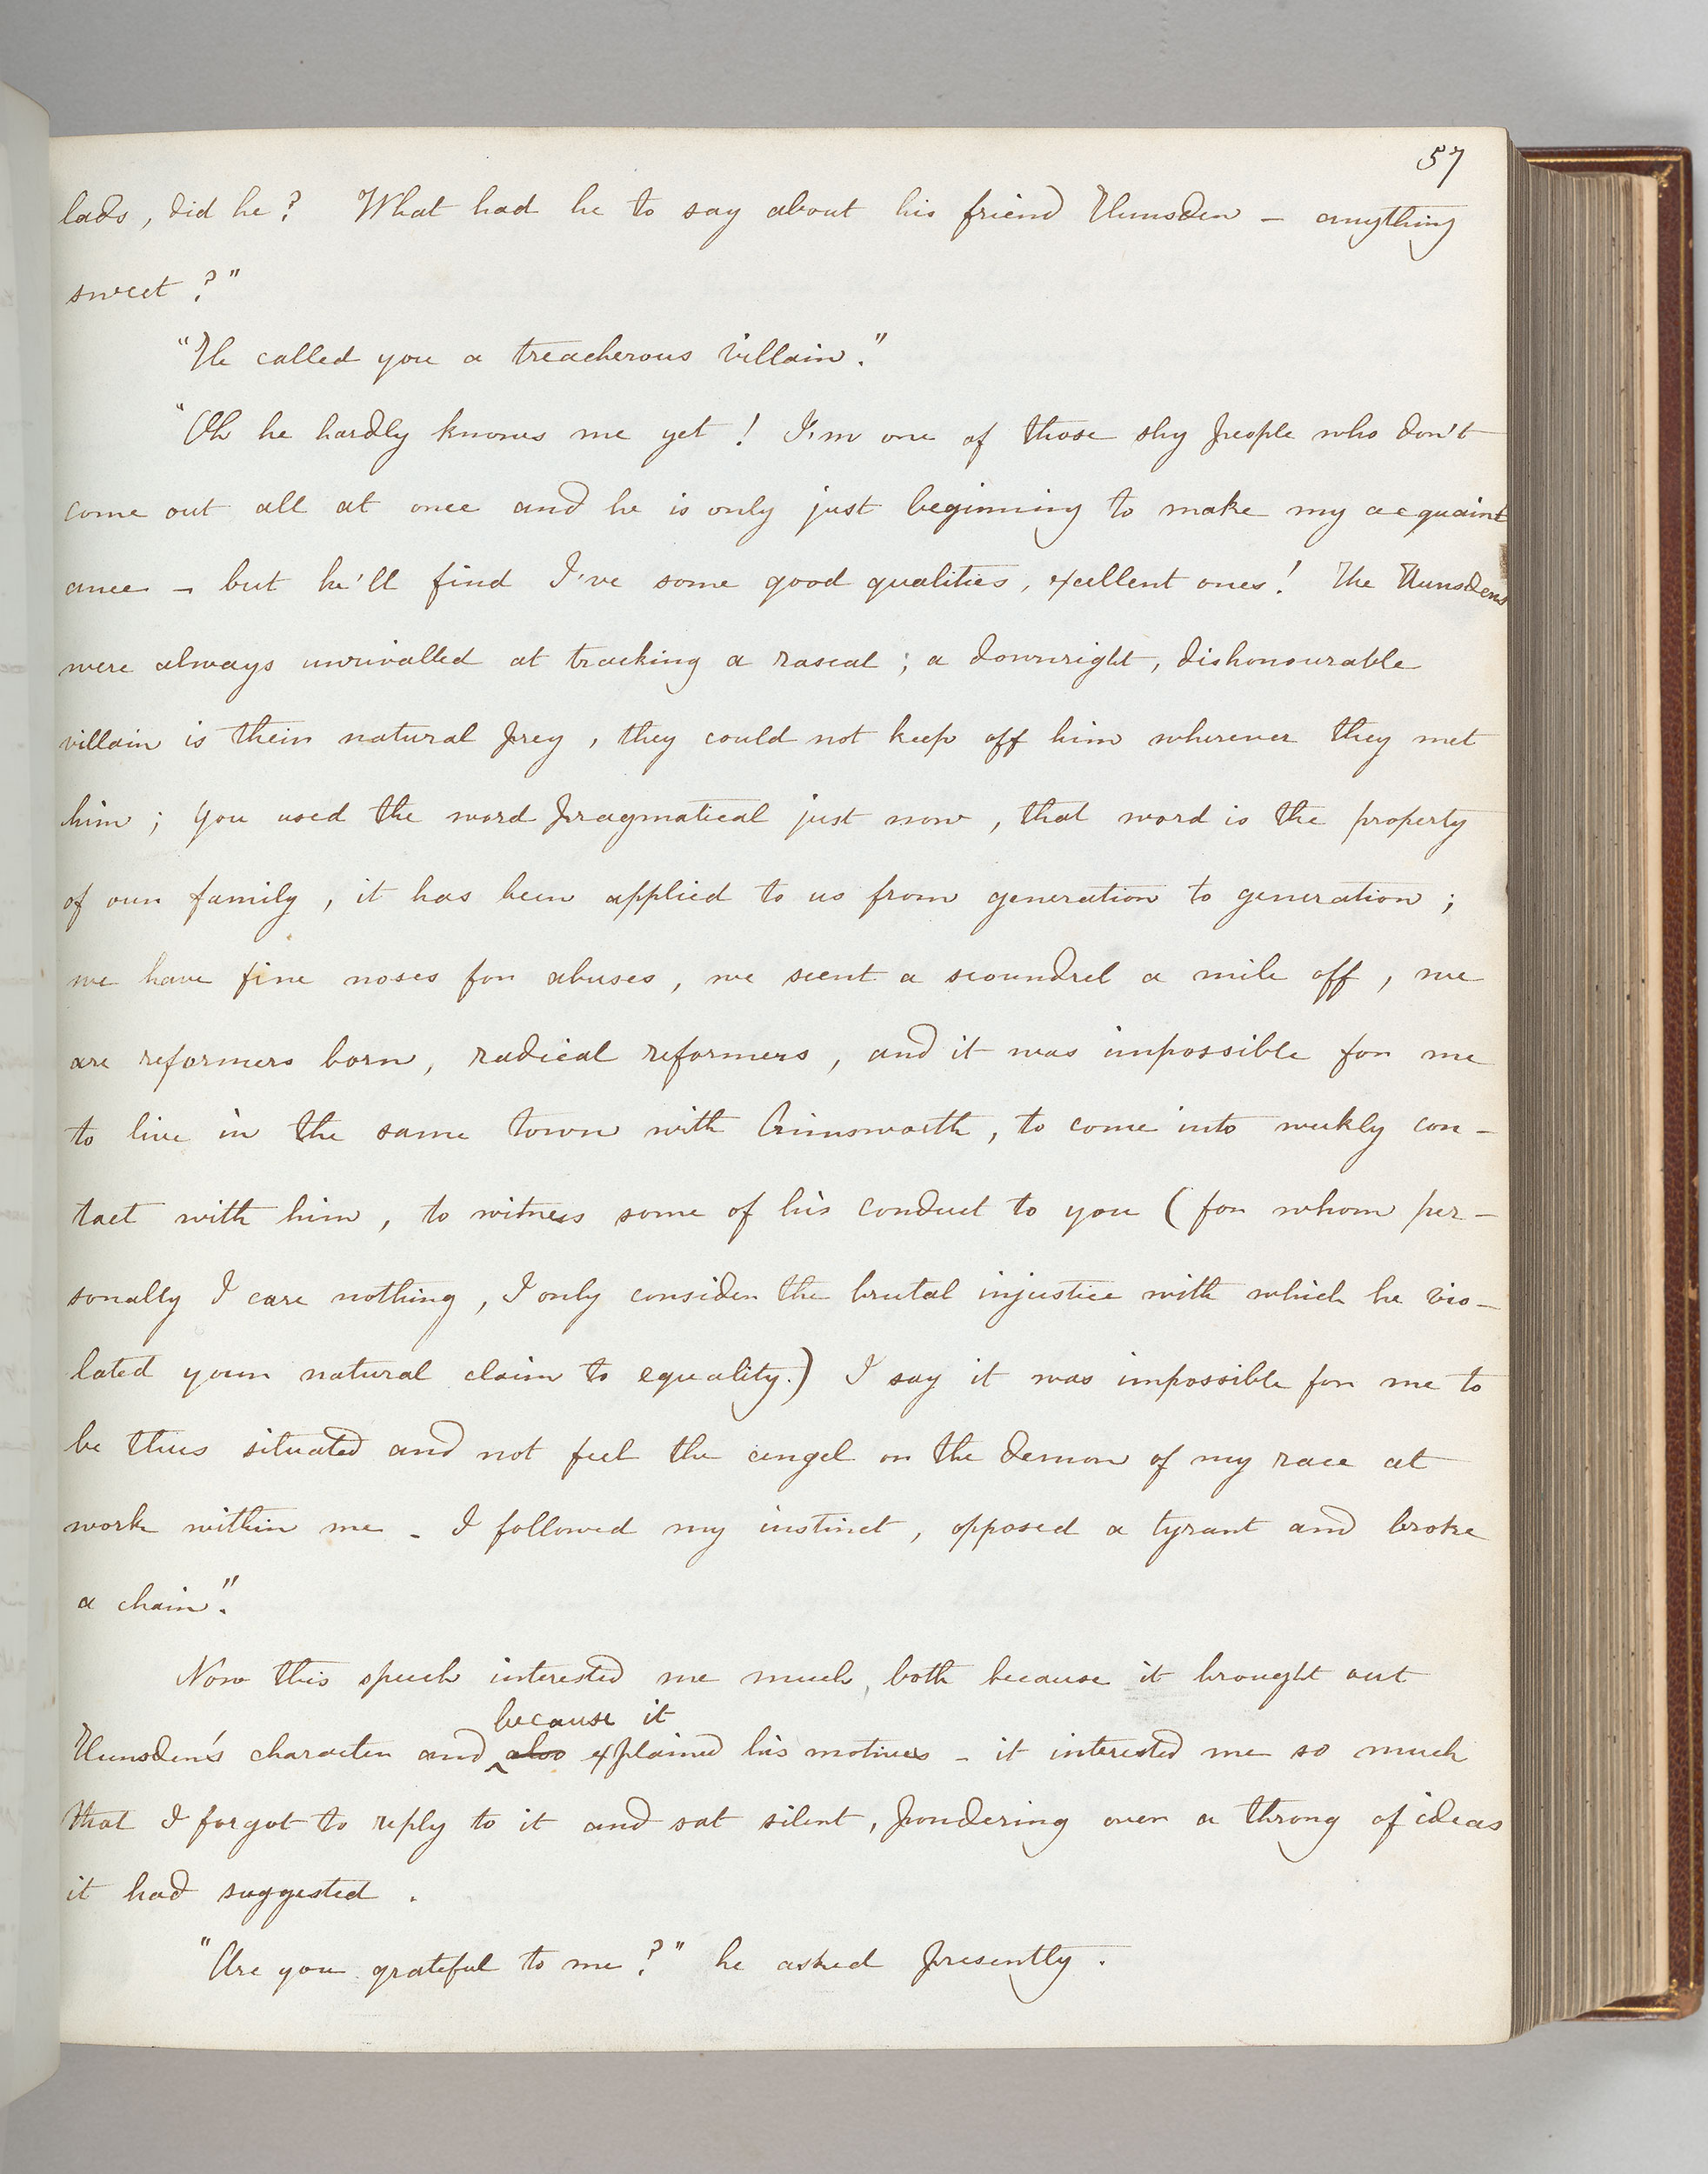 57
lads, did he? What had he to say about his friend Hunsden – anything
sweet?"
"He called you a treacherous villain."
"Oh he hardly knows me yet! I'm one of those shy people who don't
come out all at once and he is only just beginning to make my acquaint
ance – but he'll find I've some good qualities, excellent ones! The Hunsdens
were always unrivalled at tracking a rascal; a downright, dishonourable
villain is their natural prey, they could not keep off him wherever they met
him; you used the word pragmatical just now, that word is the property
of our family, it has been applied to us from generation to generation;
we have fine noses for abuses, we scent a scoundrel a mile off, we
are reformers born, radical reformers, and it was impossible for me
to live in the same town with Crimsworth, to come into weekly con-
tact with him, to witness some of his conduct to you (for whom per-
sonally I care nothing, I only consider the brutal injustice with which he vio-
lated your natural claim to equality.) I say it was impossible for me to
be thus situated and not feel the angel or the demon of my race at
work within me – I followed my instinct, opposed a tyrant and broke
a chain."
Now this speech interested me much, both because it brought out
because it
Hunsden's character and also explained his motives – it interested me so much
that I forgot to reply to it and sat silent, pondering over a throng of ideas
it had suggested.
"Are you grateful to me?" he asked presently.